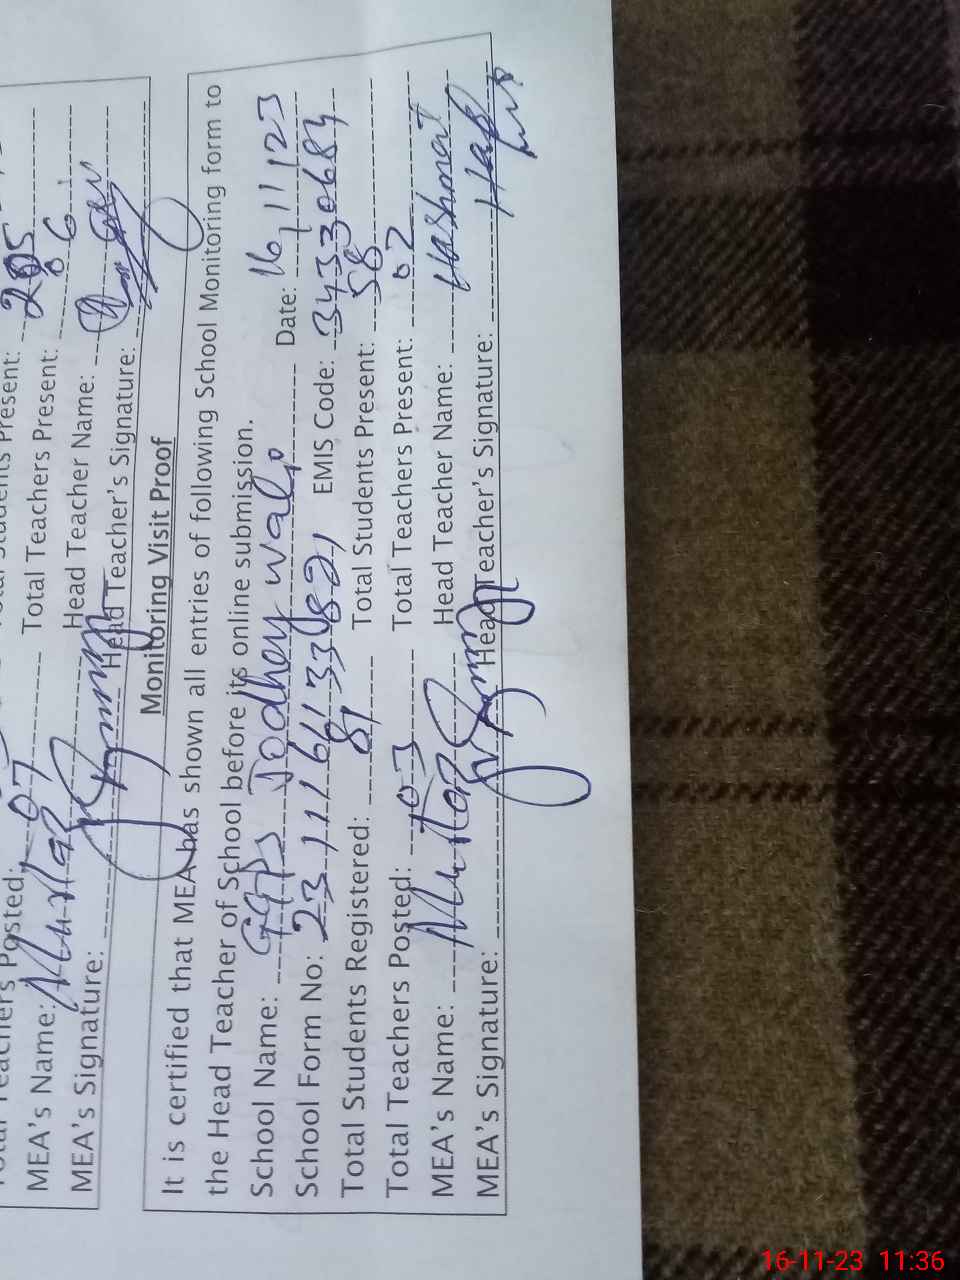 Total Teachers Posted: 07 Total Teachers Present: 06
MEA's Name: Head Teacher Name:
MEA's Signature: Head Teacher's Signature:
Monitoring Visit Proof
It is certified that MEA has shown all entries of following School Monitoring form to
the Head Teacher of School before its online submission.
School Name: GGPS Jodhey wala Date: 16/11/23
School Form No: EMIS Code: 34330684
Total Students Registered: 81 Total Students Present: 58
Total Teachers Posted: 03 Total Teachers Present: 02
MEA's Name: Head Teacher Name: Hashmat
MEA's Signature: Head Teacher's Signature:
16-11-23 11:36